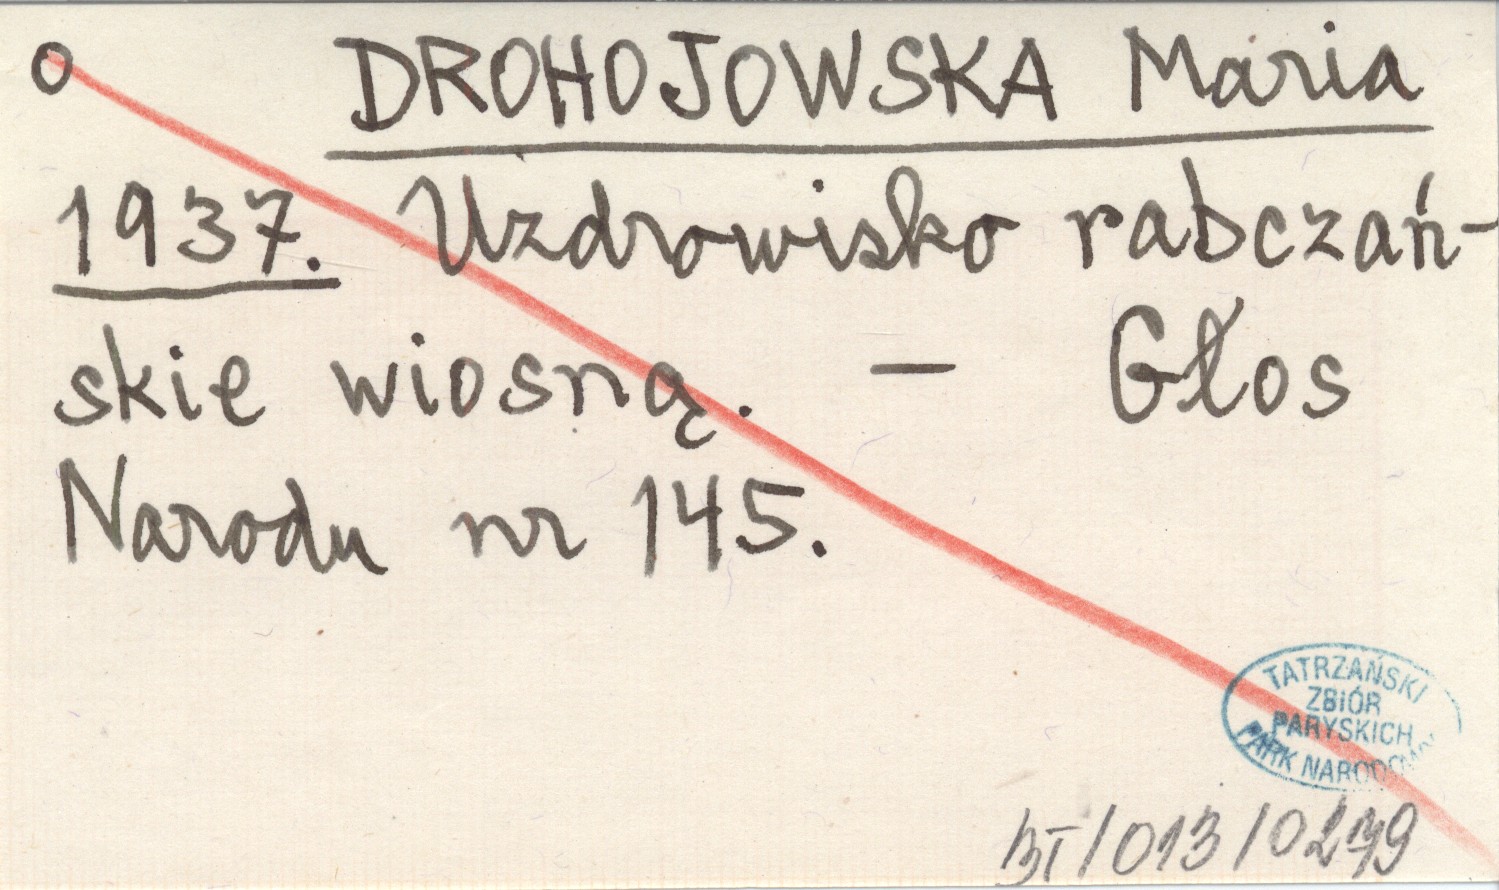 o DROHOJOWSKA Maria
1937. Uzdrowisko rabczań-
skie wiosną. — Głos
Narodu nr 145.
TATRZAŃSKI
ZBIÓR
PARYSKICH
PARK NARODOWY
BT/013/0279